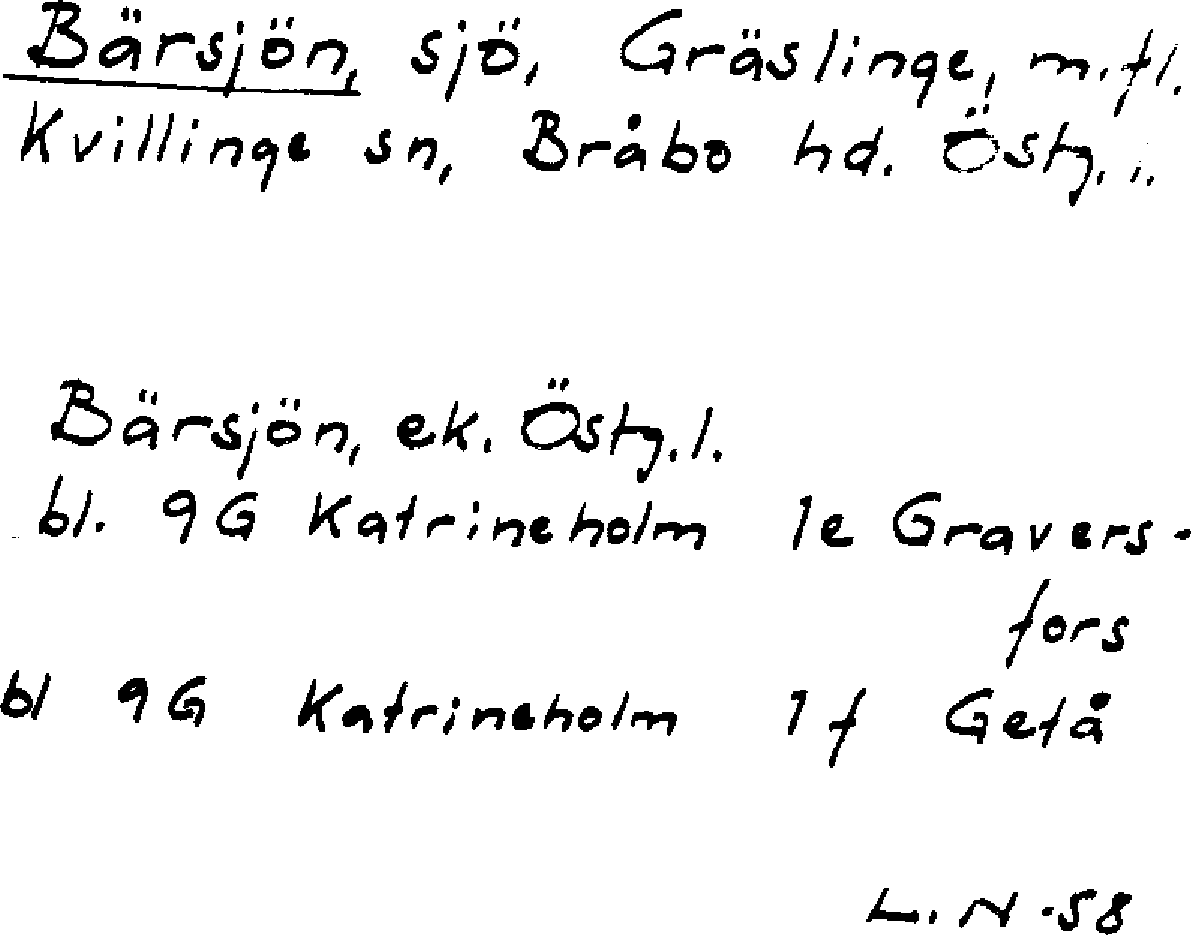 Bärsjön, sjö, Gräslinge, m.fl.
Kvillinge sn, Bråbo hd. Östg. l.
Bärsjön, ek. Östg. l.
bl. 9G Katrineholm 1e Gravers-
fors
bl 9G Katrineholm 1f Getå
L. N -58